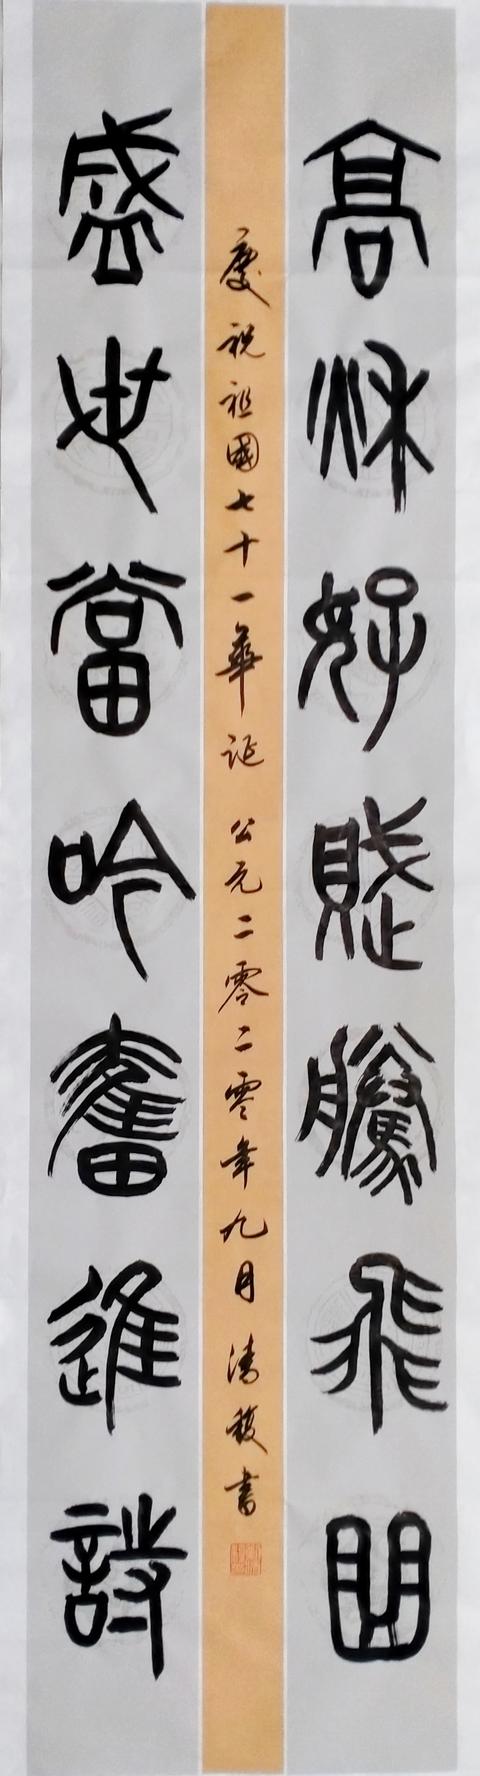 高秋好賦騰飛曲
盛世當吟奮進詩
慶祝祖國七十一華誕 公元二零二零年九月 書